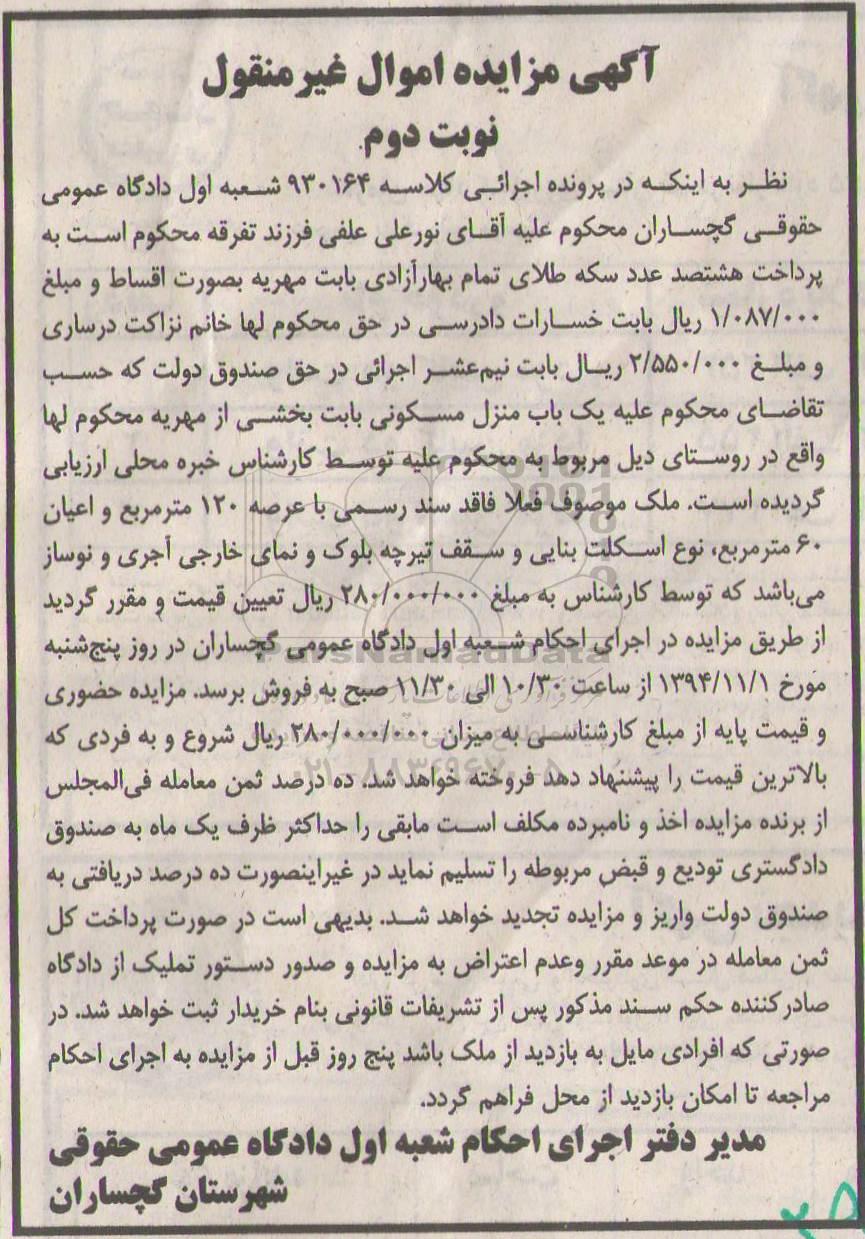 آگهی مزایده اموال غیرمنقول
نوبت دوم
نظر به اینکه در پرونده اجرائی کلاسه ۹۳۰۱۶۴ شعبه اول دادگاه عمومی
حقوقی گچساران محکوم علیه آقای نورعلی علفی فرزند تفرقه محکوم است به
پرداخت هشتصد عدد سکه طلای تمام بهارآزادی بابت مهریه بصورت اقساط و مبلغ
۱/۰۸۷/۰۰۰ ریال بابت خسارات دادرسی در حق محکوم لها خانم نزاکت درساری
و مبلغ ۲/۵۵۰/۰۰۰ ریال بابت نیم‌عشر اجرائی در حق صندوق دولت که حسب
تقاضای محکوم علیه یک باب منزل مسکونی بابت بخشی از مهریه محکوم لها
واقع در روستای دیل مربوط به محکوم علیه توسط کارشناس خبره محلی ارزیابی
گردیده است. ملک موصوف فعلا فاقد سند رسمی با عرصه ۱۲۰ مترمربع و اعیان
۶۰ مترمربع، نوع اسکلت بنایی و سقف تیرچه بلوک و نمای خارجی آجری و نوساز
می‌باشد که توسط کارشناس به مبلغ ۲۸۰/۰۰۰/۰۰۰ ریال تعیین قیمت و مقرر گردید
از طریق مزایده در اجرای احکام شعبه اول دادگاه عمومی گچساران در روز پنج‌شنبه
مورخ ۱۳۹۴/۱۱/۱ از ساعت ۱۰/۳۰ الی ۱۱/۳۰ صبح به فروش برسد. مزایده حضوری
و قیمت پایه از مبلغ کارشناسی به میزان ۲۸۰/۰۰۰/۰۰۰ ریال شروع و به فردی که
بالاترین قیمت را پیشنهاد دهد فروخته خواهد شد. ده درصد ثمن معامله فی‌المجلس
از برنده مزایده اخذ و نامبرده مکلف است مابقی را حداکثر ظرف یک ماه به صندوق
دادگستری تودیع و قبض مربوطه را تسلیم نماید در غیراینصورت ده درصد دریافتی به
صندوق دولت واریز و مزایده تجدید خواهد شد. بدیهی است در صورت پرداخت کل
ثمن معامله در موعد مقرر وعدم اعتراض به مزایده و صدور دستور تملیک از دادگاه
صادرکننده حکم سند مذکور پس از تشریفات قانونی بنام خریدار ثبت خواهد شد. در
صورتی که افرادی مایل به بازدید از ملک باشد پنج روز قبل از مزایده به اجرای احکام
مراجعه تا امکان بازدید از محل فراهم گردد.
مدیر دفتر اجرای احکام شعبه اول دادگاه عمومی حقوقی
شهرستان گچساران
ParsNamadData